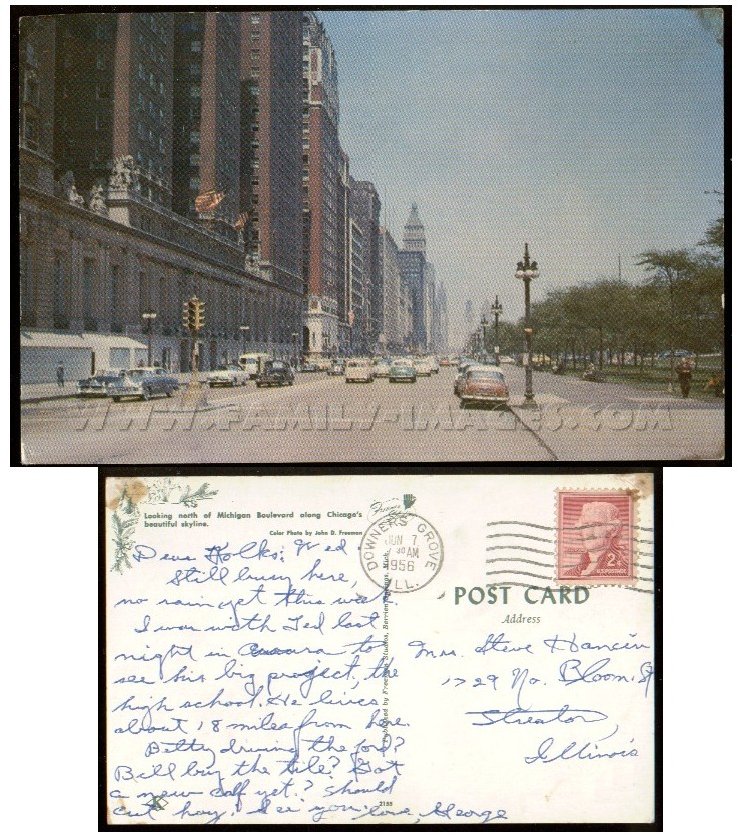 WWW.FAMILY-IMAGES.COM
Looking north of Michigan Boulevard along Chicago's
beautiful skyline.
Color Photo by John D. Freeman
DOWNERS GROVE
JUN 7
30 AM
1956
ILL.
2¢
POST CARD
Address
Dear Folks; Wed
Still busy here,
no rain yet this week.
I was with Ted last
night in to
see his big project, the
high school. He lives
about 18 miles from here.
Betty driving the ford?
Bill buy the tile? Got
a new calf yet? Should
cut hay. I see you. Love, George
Mrs. Steve Hancin
1729 No. Bloom. St
Streator,
Illinois
Published by Freeman Studios, Berrien Springs, Mich.
2155
K